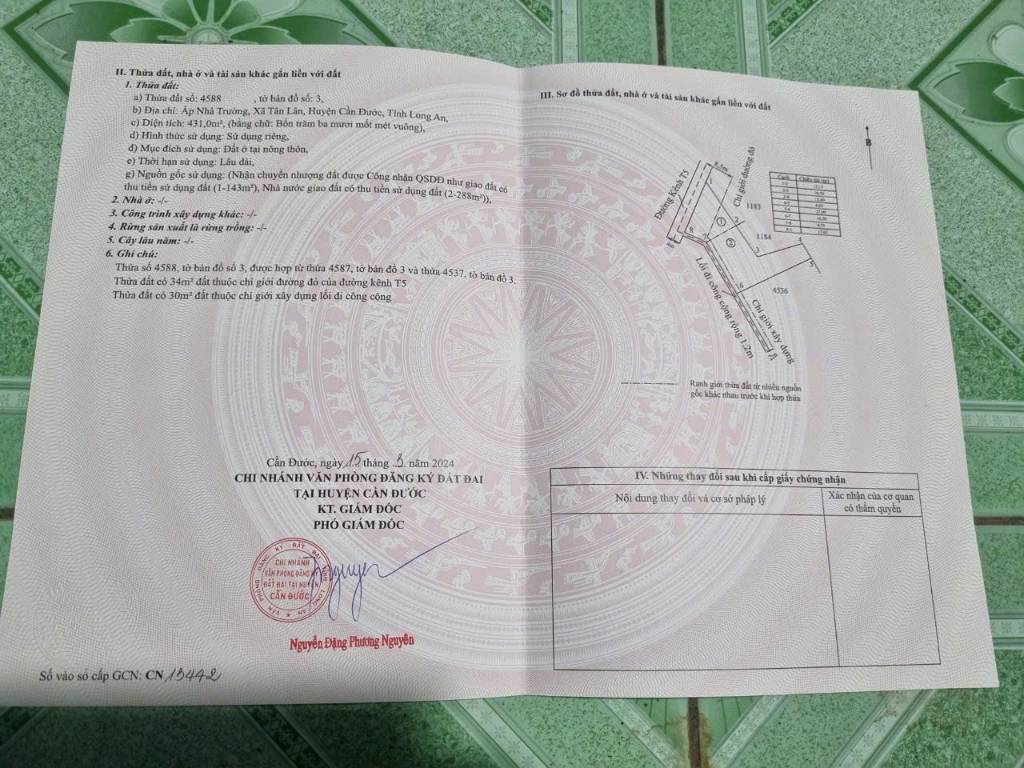 II. Thửa đất, nhà ở và tài sản khác gắn liền với đất
1. Thửa đất:
a) Thửa đất số: 4588 , tờ bản đồ số: 3,
b) Địa chỉ: Ấp Nhà Trường, Xã Tân Lân, Huyện Cần Đước, Tỉnh Long An,
c) Diện tích: 431,0m², (bằng chữ: Bốn trăm ba mươi mốt mét vuông),
d) Hình thức sử dụng: Sử dụng riêng,
đ) Mục đích sử dụng: Đất ở tại nông thôn,
e) Thời hạn sử dụng: Lâu dài,
g) Nguồn gốc sử dụng: (Nhận chuyển nhượng đất được Công nhận QSDĐ như giao đất có
thu tiền sử dụng đất (1-143m²), Nhà nước giao đất có thu tiền sử dụng đất (2-288m²)),
2. Nhà ở: -/-
3. Công trình xây dựng khác: -/-
4. Rừng sản xuất là rừng trồng: -/-
5. Cây lâu năm: -/-
6. Ghi chú:
Thửa số 4588, tờ bản đồ số 3, được hợp từ thửa 4587, tờ bản đồ 3 và thửa 4537, tờ bản đồ 3.
Thửa đất có 34m² đất thuộc chỉ giới đường đỏ của đường kênh T5
Thửa đất có 30m² đất thuộc chỉ giới xây dựng lối đi công cộng
Cần Đước, ngày 15 tháng 3 năm 2024
CHI NHÁNH VĂN PHÒNG ĐĂNG KÝ ĐẤT ĐAI
TẠI HUYỆN CẦN ĐƯỚC
KT. GIÁM ĐỐC
PHÓ GIÁM ĐỐC
CHI NHÁNH
VĂN PHÒNG ĐĂNG KÝ
ĐẤT ĐAI TẠI HUYỆN
CẦN ĐƯỚC
Nguyễn Đặng Phương Nguyên
Số vào sổ cấp GCN: CN 13442
III. Sơ đồ thửa đất, nhà ở và tài sản khác gắn liền với đất
B
Đường Kênh T5
Chỉ giới đường đỏ
1183
1184
4536
1
2
3
4
5
6
7
8
Lối đi công cộng rộng 1,2m
Chỉ giới xây dựng
Ranh giới thửa đất từ nhiều nguồn
gốc khác nhau trước khi hợp thửa
IV. Những thay đổi sau khi cấp giấy chứng nhận
Nội dung thay đổi và cơ sở pháp lý
Xác nhận của cơ quan
có thẩm quyền